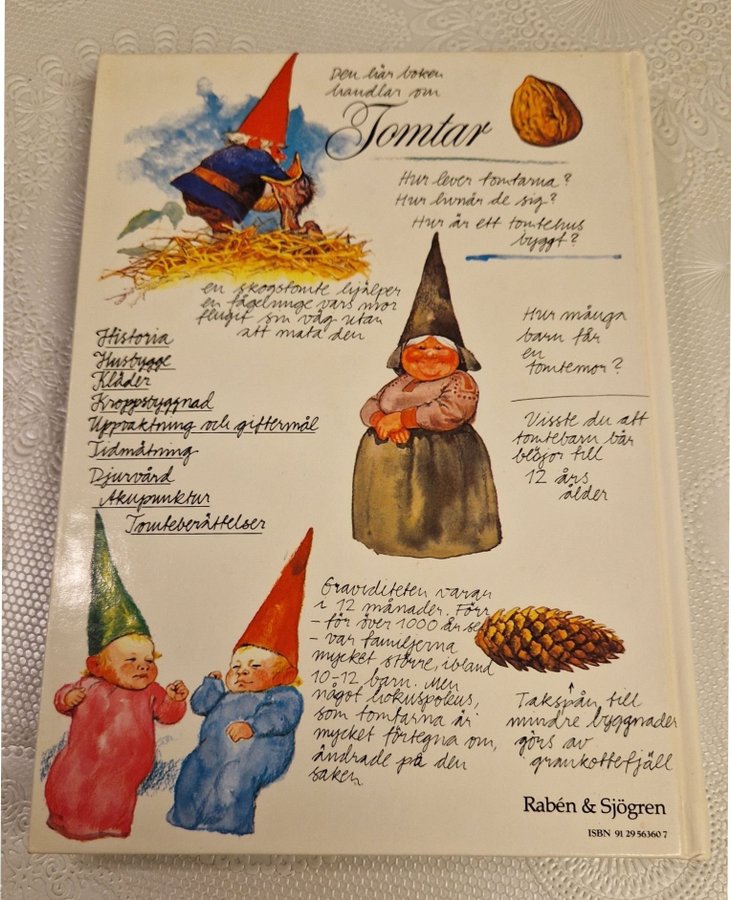 Den här boken
handlar om
Tomtar
Hur lever tomtarna?
Hur livnär de sig?
Hur är ett tomtehus
byggt?
en skogstomte hjälper
en fågelunge vars mor
flugit sin väg utan
att mata den
Historia
Husbygge
Kläder
Kroppsbyggnad
Uppvaktning och giftermål
Tidmätning
Djurvård
Akupunktur
Tomteberättelser
Hur många
barn får
en
tomtemor?
Visste du att
tomtebarn bär
blöjor till
12 års
ålder
Graviditeten varar
i 12 månader. Förr
- för över 1000 år sen
- var familjerna
mycket större, ibland
10-12 barn. Men
något hokuspokus,
som tomtarna är
mycket förtegna om,
ändrade på den
saken
Takspån till
mindre byggnader
görs av
grankottefjäll
Rabén & Sjögren
ISBN 91 29 56360 7